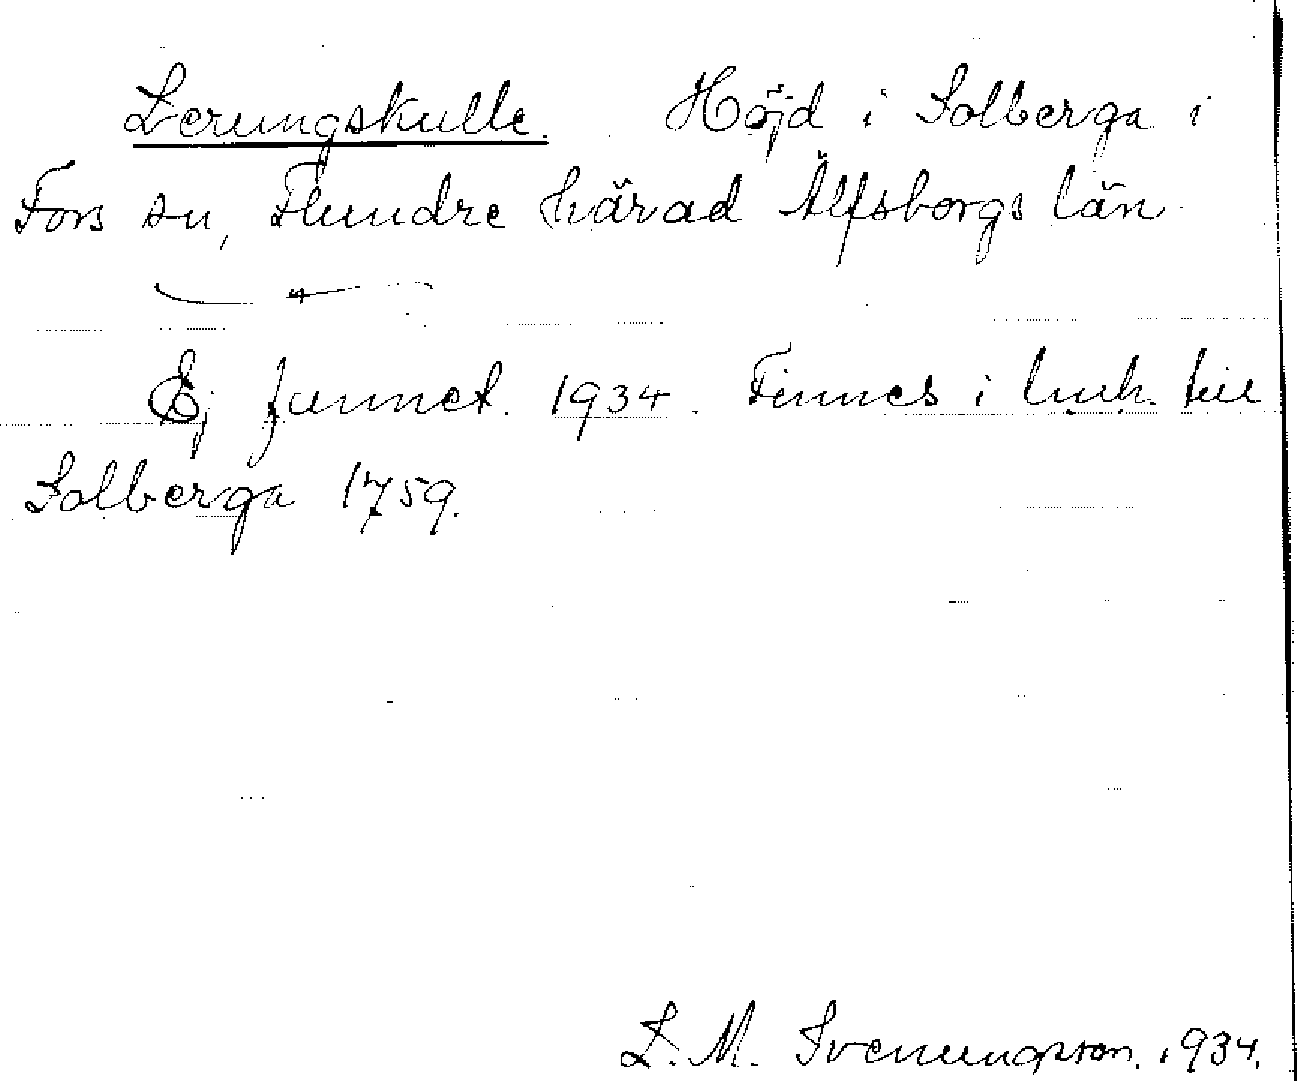 Lerungskulle. Höjd i Solberga i
Fors sn, Flundre härad Älfsborgs län
Ej funnet. 1934. Finnes i till
Solberga 1759.
L. M. Svenungsson. 1934.